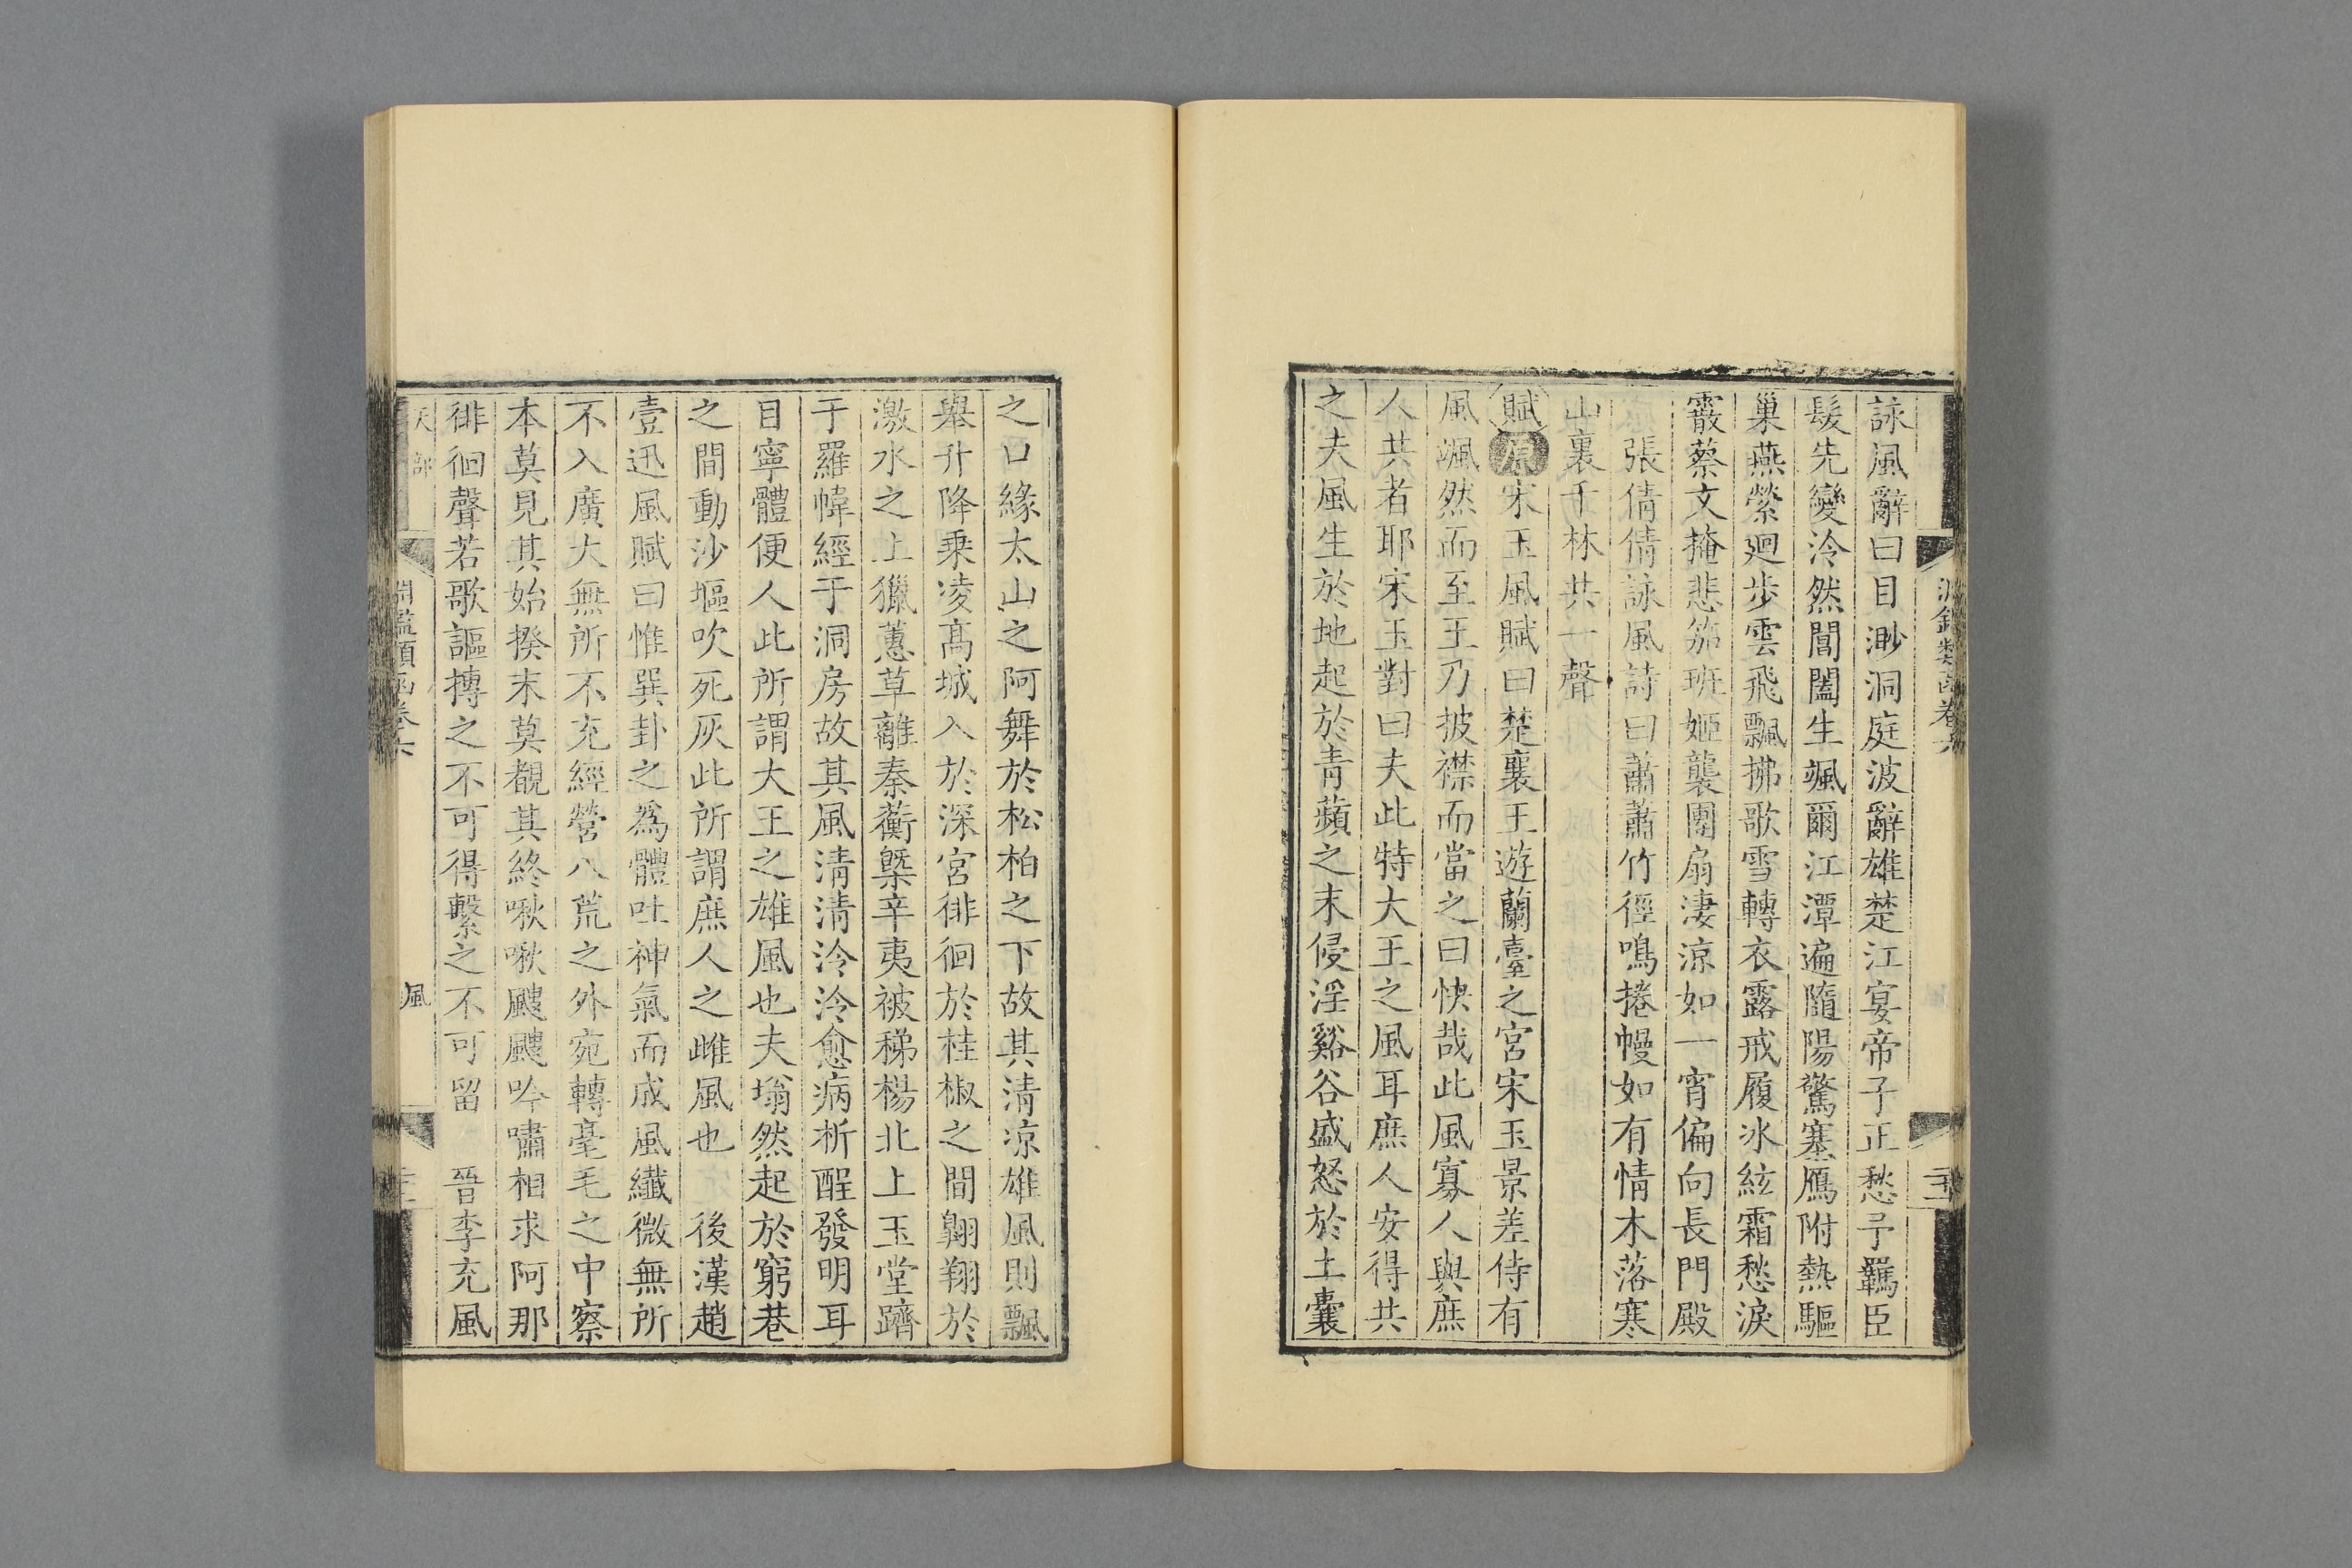 詠風辭曰目渺洞庭波辭雄楚江宴帝子正愁予羈臣
髮先變泠然閶闔生颯爾江潭遍隨陽驚塞鴈附熱驅
巢燕縈廻步雲飛飄拂歌雪轉衣露戒履冰絃霜愁淚
霰蔡文掩悲笳班姬襲團扇淒凉如一宵偏向長門殿
張倩倩詠風詩曰蕭蕭竹徑鳴捲幔如有情木落寒
山裏千林共一聲
賦原宋玉風賦曰楚襄王遊蘭臺之宮宋玉景差侍有
風颯然而至王乃披襟而當之曰快哉此風寡人與庶
人共者耶宋玉對曰夫此特大王之風耳庶人安得共
之夫風生於地起於青蘋之末侵淫谿谷盛怒於土囊
之口緣太山之阿舞於松柏之下故其清凉雄風則飄
舉升降乗凌髙城入於深宮徘徊於桂椒之間翺翔於
激水之上獵蕙草離秦蘅槩辛夷被稊楊北上玉堂躋
于羅幃經于洞房故其風清清泠泠愈病析酲發明耳
目寧體便人此所謂大王之雄風也夫塕然起於窮巷
之間動沙堀吹死灰此所謂庶人之雌風也 後漢趙
壹迅風賦曰惟巽卦之爲體吐神氣而成風纎微無所
不入廣大無所不充經營八荒之外宛轉毫毛之中察
本莫見其始揆末莫覩其終啾啾颼颼吟嘯相求阿那
徘徊聲若歌謳摶之不可得繫之不可留 晉李充風
天部
淵鑑類函卷六
風